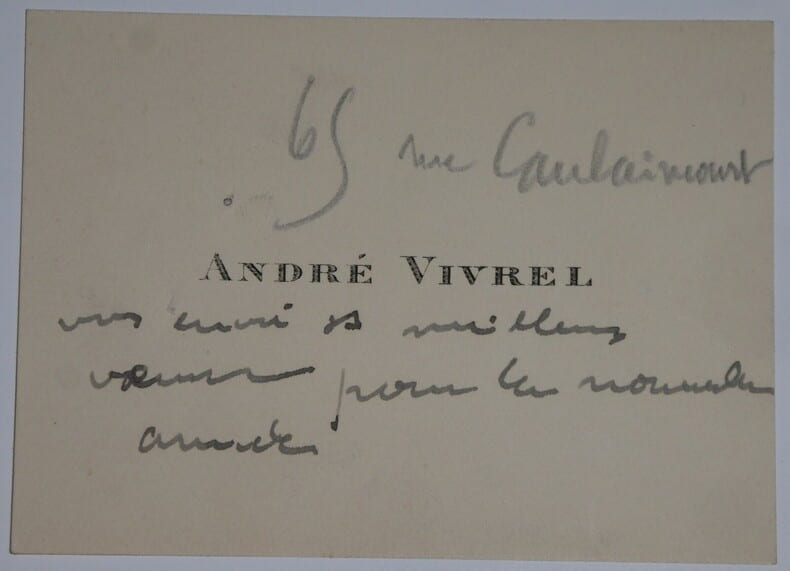 65 rue Caulaincourt
ANDRÉ VIVREL
vous envoi ses meilleurs
vœux pour la nouvelle
année